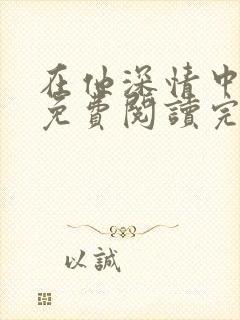 在他深情中
免費閱讀完
以誠